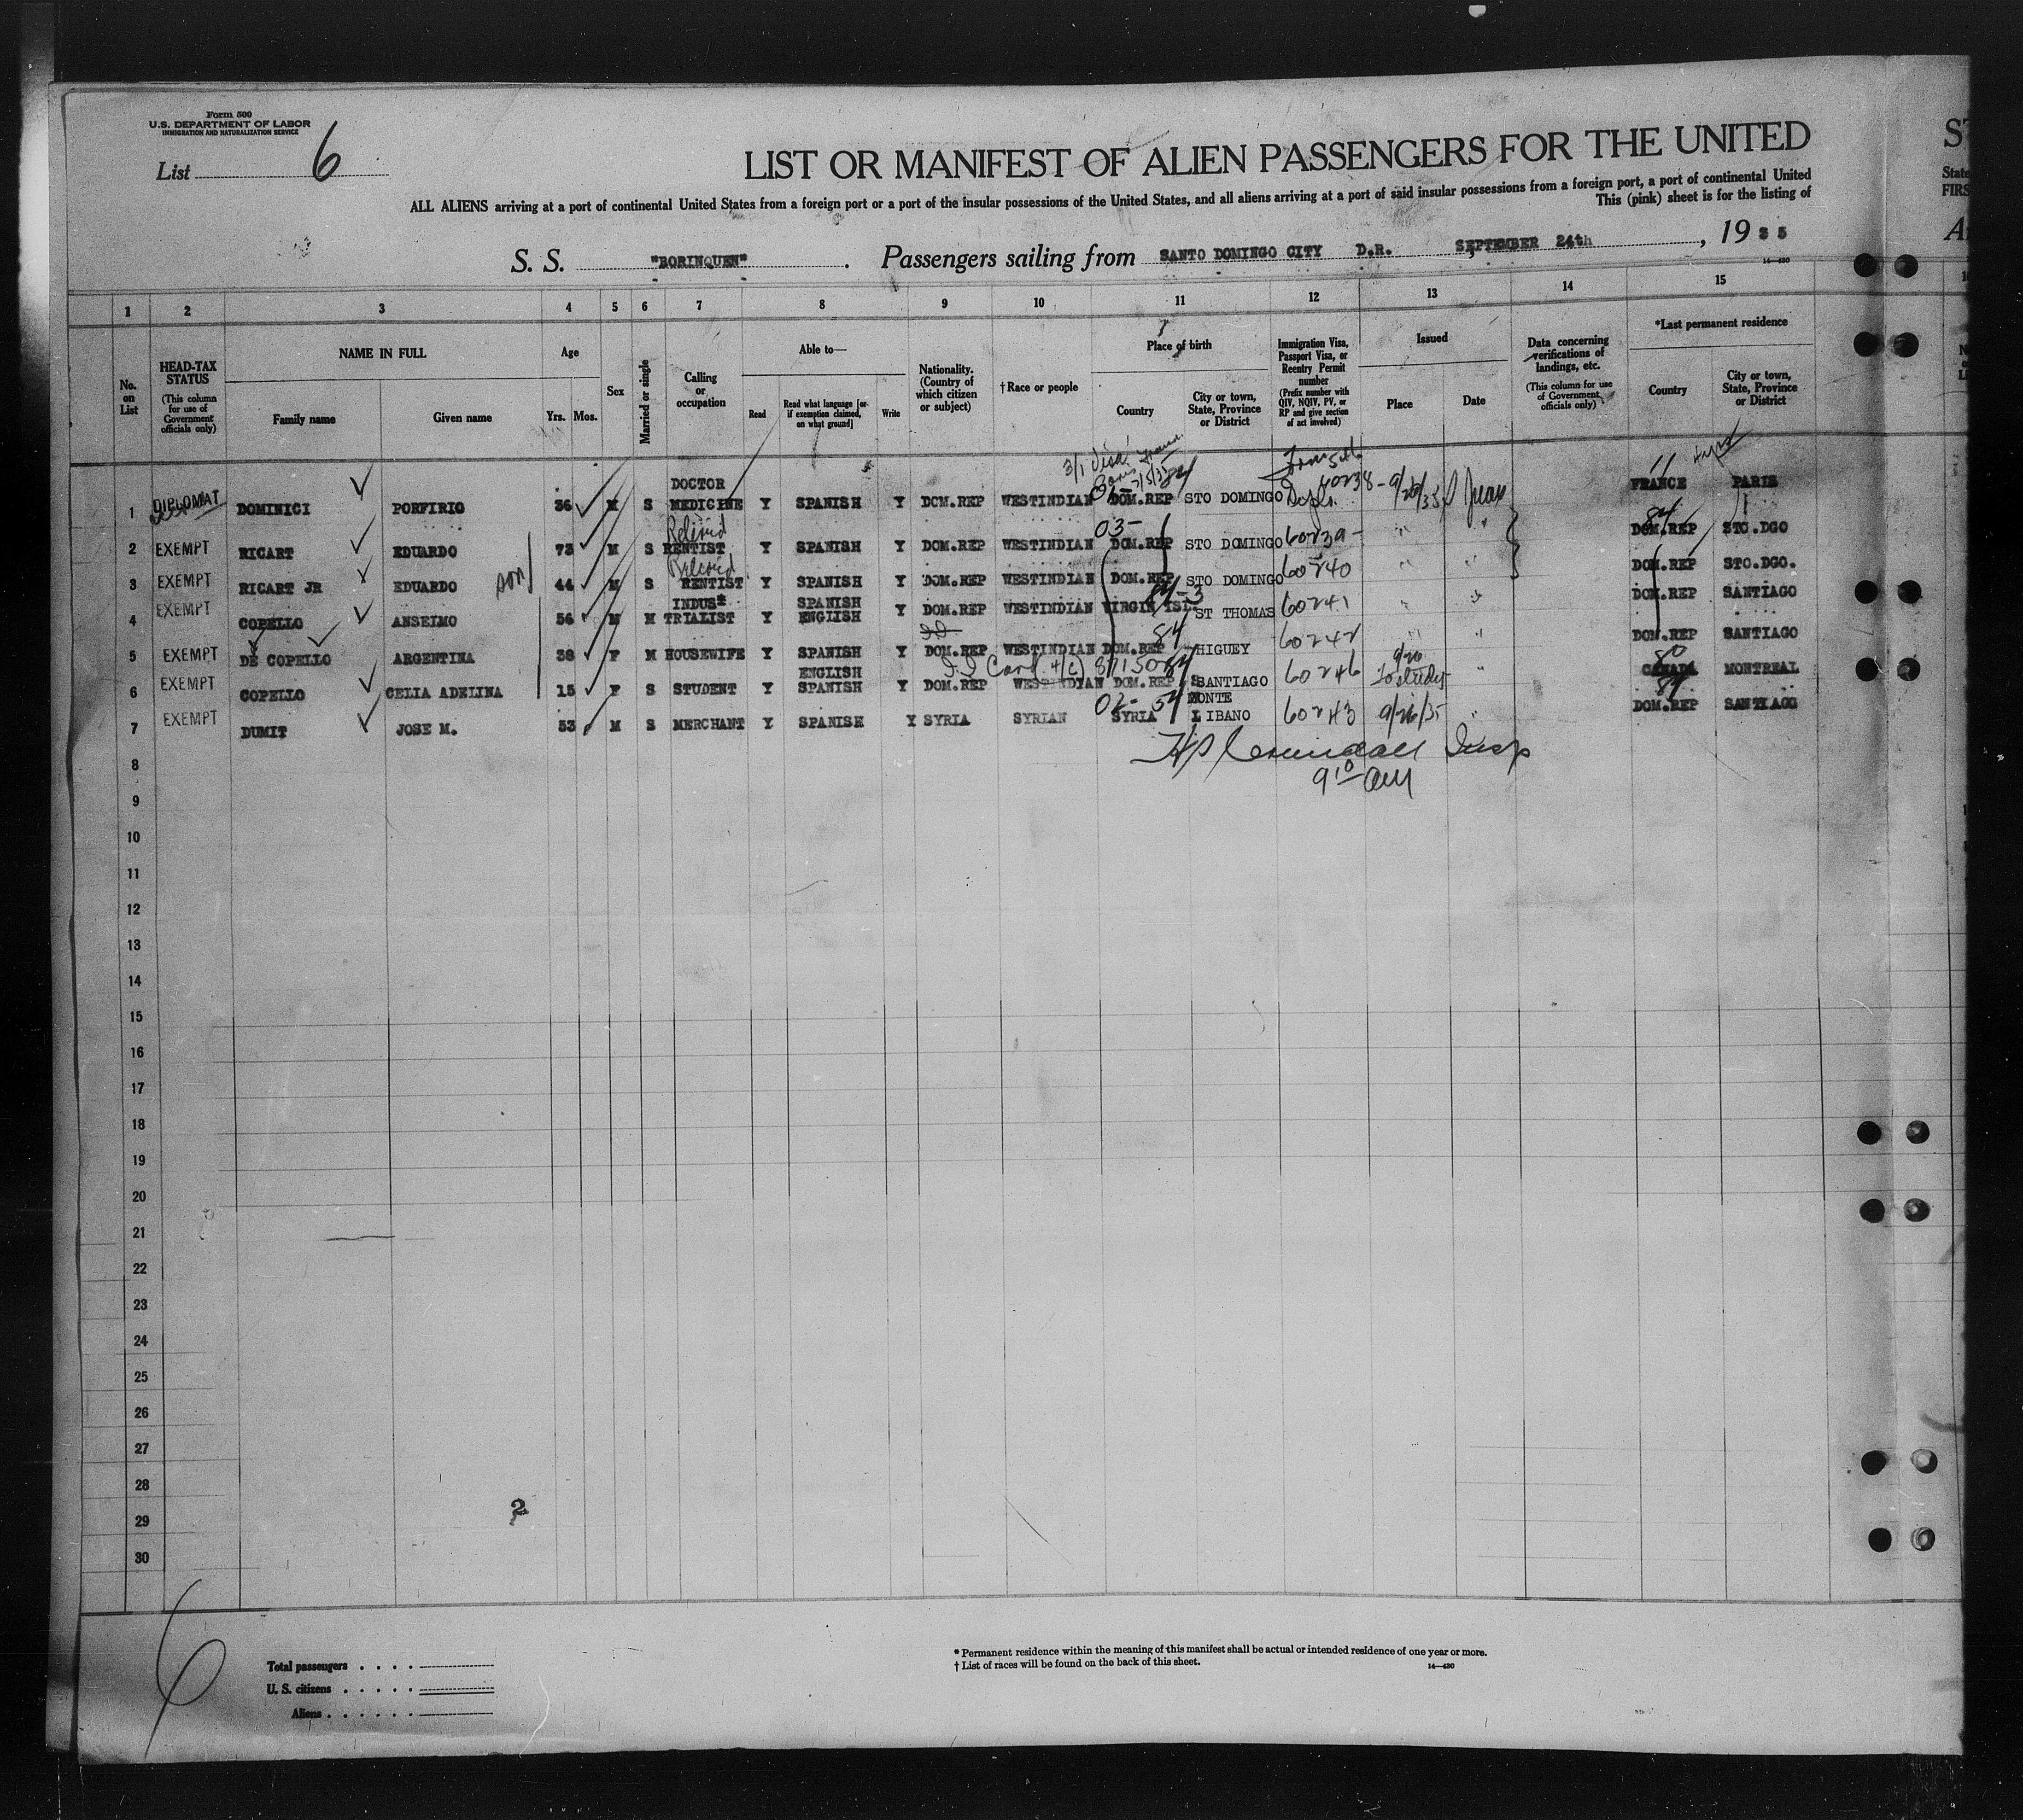 Form 500
U.S. DEPARTMENT OF LABOR
IMMIGRATION AND NATURALIZATION SERVICE
List 6
LIST OR MANIFEST OF ALIEN PASSENGERS FOR THE UNITED
ALL ALIENS arriving at a port of continental United States from a foreign port or a port of the insular possessions of the United States, and all aliens arriving at a port of said insular possessions from a foreign port, a port of continental United
This (pink) sheet is for the listing of
S. S. "BORINQUEN". Passengers sailing from SANTO DOMINGO CITY D.R. SEPTEMBER 24th, 1935
14—430
1 2 3 4 5 6 7 8 9 10 11 12 13 14 15
No. on List
HEAD-TAX STATUS (This column for use of Government officials only)
NAME IN FULL
Family name
Given name
Age
Yrs. Mos.
Sex
Married or single
Calling or occupation
Able to—
Read
Read what language [or, if exemption claimed, on what ground]
Write
Nationality. (Country of which citizen or subject)
†Race or people
Place of birth
Country
City or town, State, Province or District
Immigration Visa, Passport Visa, or Reentry Permit number (Prefix number with QIV, NQIV, PV, or RP and give section of act involved)
Issued
Place
Date
Data concerning verifications of landings, etc. (This column for use of Government officials only)
*Last permanent residence
Country
City or town, State, Province or District
3/1 Visa
1 DIPLOMAT DOMINICI PORFIRIO 36 M S DOCTOR MEDICINE Y SPANISH Y DOM.REP WESTINDIAN DOM.REP STO DOMINGO 60238 - 9/26/35 S Juan FRANCE PARIS
2 EXEMPT RICART EDUARDO 73 M S Retired RENTIST Y SPANISH Y DOM.REP WESTINDIAN 03- DOM.REP STO DOMINGO 60239 - " " 84 DOM.REP STO.DGO
3 EXEMPT RICART JR EDUARDO son 44 M S Retired RENTIST Y SPANISH Y DOM.REP WESTINDIAN DOM.REP STO DOMINGO 60240 " " DOM.REP STO.DGO.
4 EXEMPT COPELLO ANSELMO 56 M M INDUS= TRIALIST Y SPANISH ENGLISH Y DOM.REP WESTINDIAN VIRGIN ISL ST THOMAS 60241 " " DOM.REP SANTIAGO
5 EXEMPT DE COPELLO ARGENTINA 38 F M HOUSEWIFE Y SPANISH Y DOM.REP WESTINDIAN DOM.REP 84 HIGUEY 60242 " " DOM.REP SANTIAGO
6 EXEMPT COPELLO CELIA ADELINA 15 F S STUDENT Y ENGLISH SPANISH Y DOM.REP WESTINDIAN DOM.REP SANTIAGO 60246 9/20 To study " 80 CANADA MONTREAL
7 EXEMPT DUMIT JOSE M. 53 M S MERCHANT Y SPANISH Y SYRIA SYRIAN 02- 54 SYRIA MONTE LIBANO 60243 9/26/35 " 84 DOM.REP SANTIAGO
8
Insp
9 10 AM
9
10
11
12
13
14
15
16
17
18
19
20
21
22
23
24
25
26
27
28
29
30
2
6
Total passengers . . . .
U. S. citizens . . . . .
Aliens . . . . . .
* Permanent residence within the meaning of this manifest shall be actual or intended residence of one year or more.
† List of races will be found on the back of this sheet.
14—430